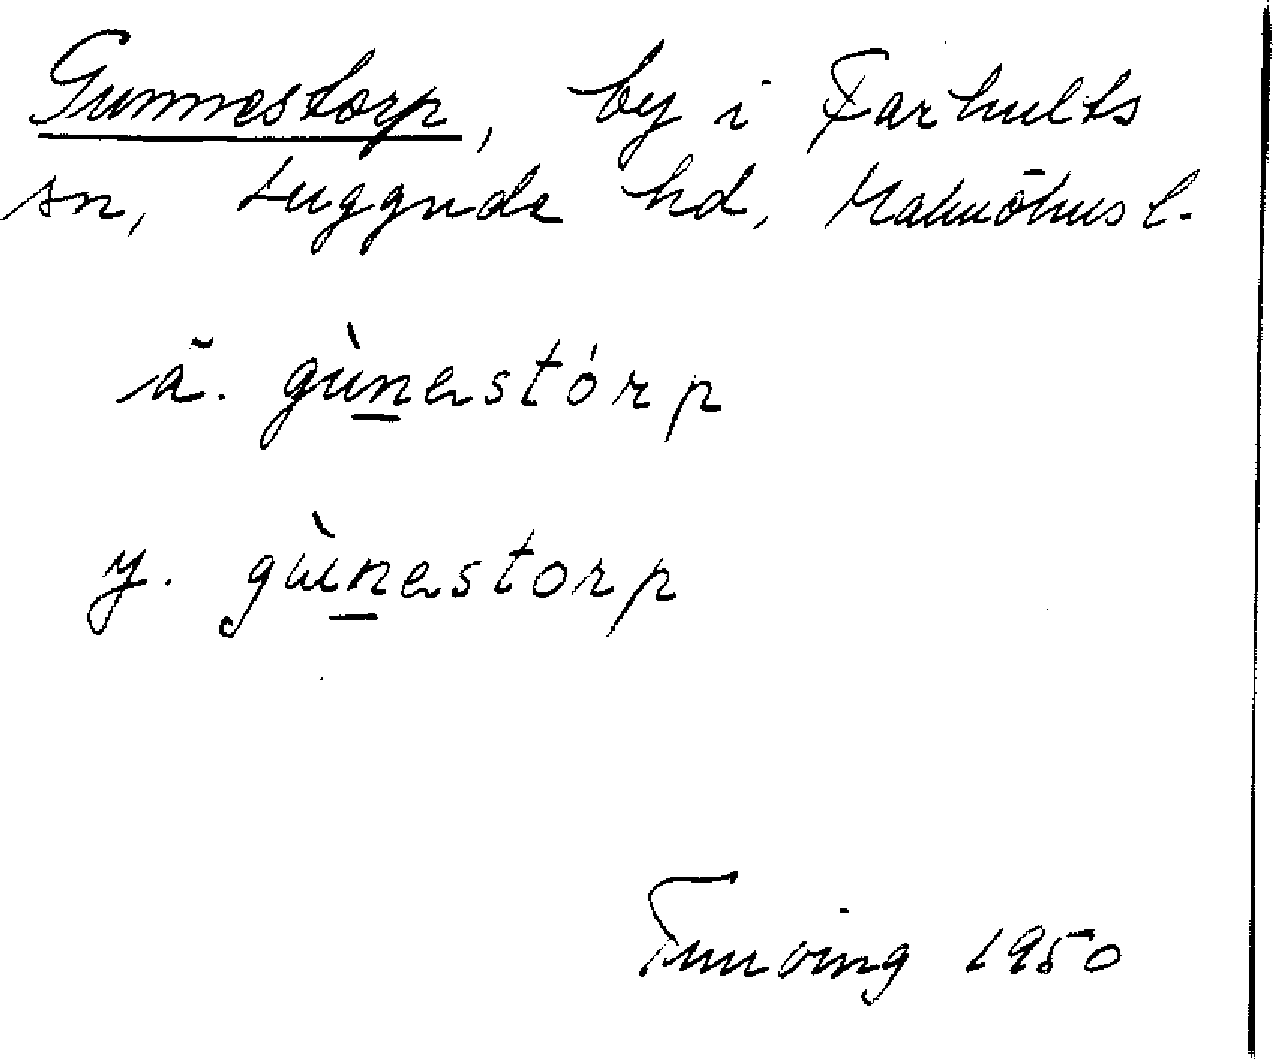 Gunnestorp, by i Farhults
sn, Luggude hd, Malmöhus l.
ä. gùnestórp
y. gùnestorp
1950